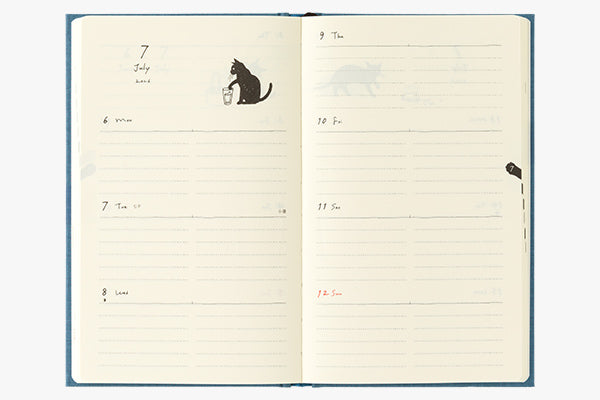 7
July
6 Mon
7 Tue
8 Wed
9 Thu
10 Fri
11 Sat
12 Sun
7